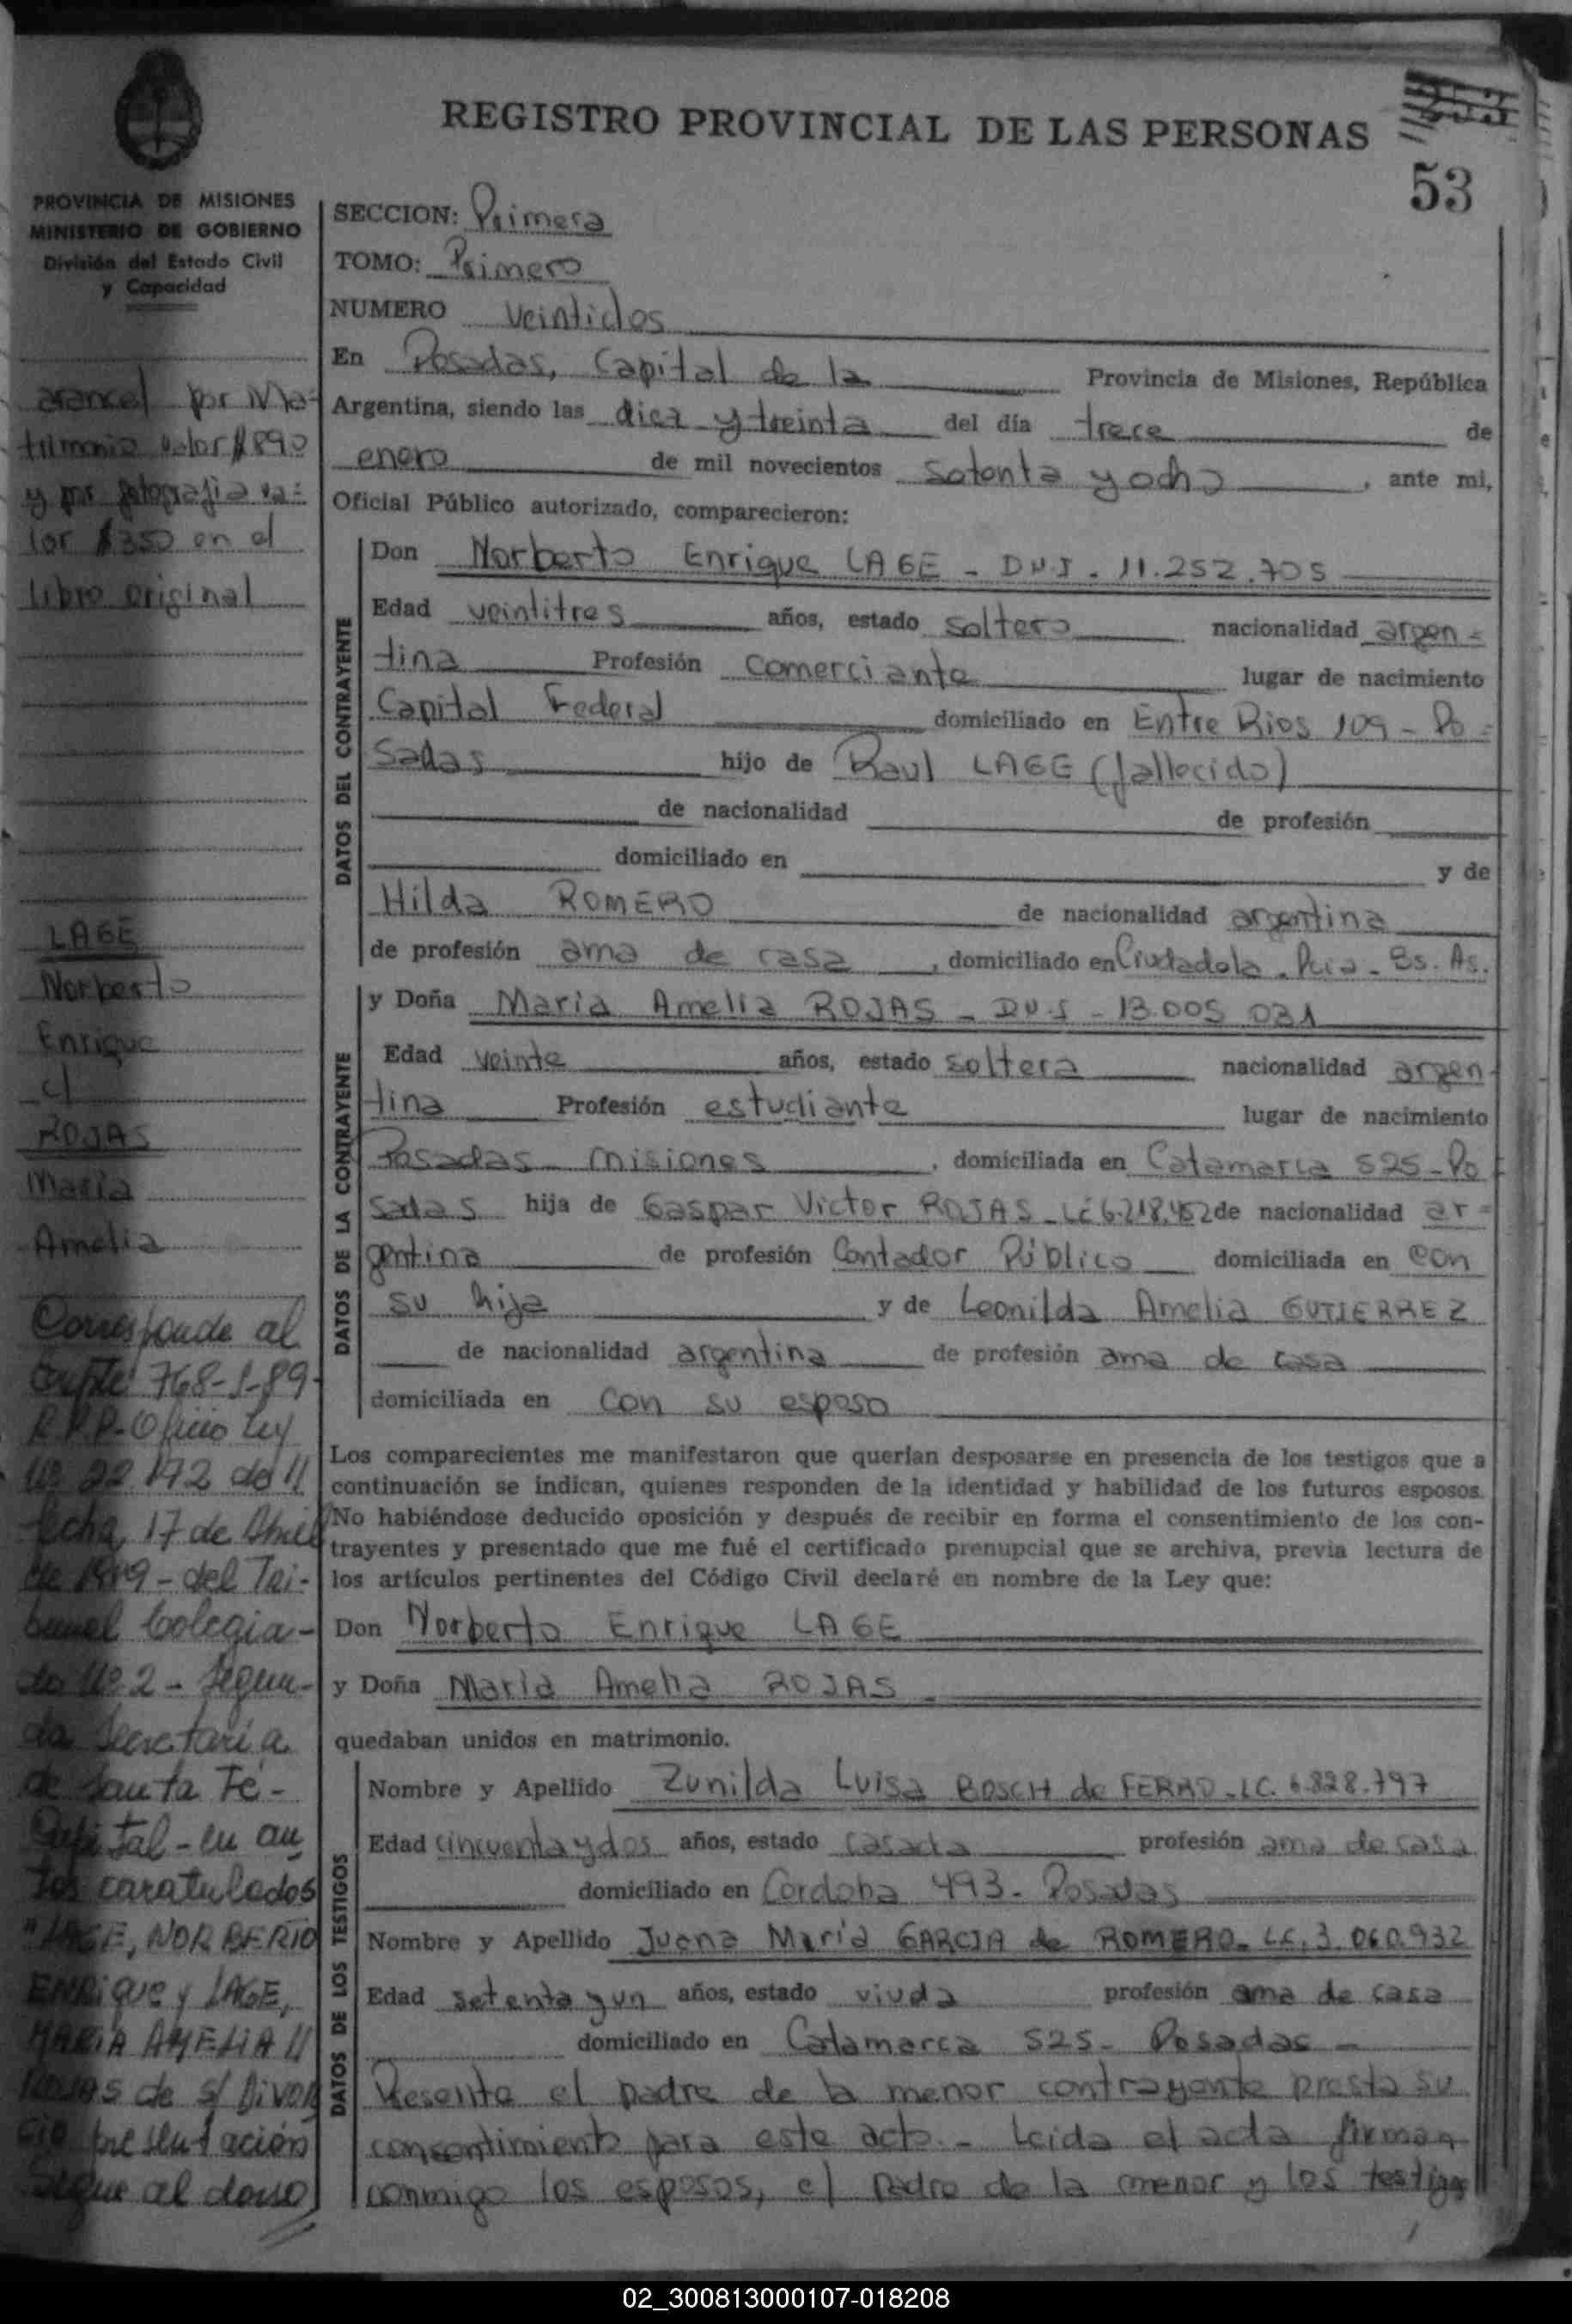 REGISTRO PROVINCIAL DE LAS PERSONAS
53
PROVINCIA DE MISIONES
MINISTERIO DE GOBIERNO
División del Estado Civil
y Capacidad
arancel por Ma-
trimonio valor $890
y por fotografia va=
lor $350 en el
libro original
LAGE
Norberto
Enrique
c/
ROJAS
Maria
Amelia
Corresponde al
Expte 768-S-89-
R.P.P-Oficio Ley
Nº 22.172 de //
fecha, 17 de Abril
de 1989 - del Tri-
bunal Colegia-
do Nº 2 - Segun-
da Secretaría
de Santa Fé -
Capital - en au
tos caratulados
"LAGE, NORBERTO
ENRIQUE y LAGE,
MARIA AMELIA //
ROJAS de s/ Divor
cio presentación
Sigue al dorso
SECCION: Primera
TOMO: Primero
NUMERO veintidos
En Posadas, Capital de la Provincia de Misiones, República
Argentina, siendo las diez y treinta del día trece de
enero de mil novecientos setenta y ocho, ante mi,
Oficial Público autorizado, comparecieron:
DATOS DEL CONTRAYENTE
Don Norberto Enrique LAGE - DNI - 11.252.705
Edad veintitres años, estado soltero nacionalidad argen=
tina Profesión comerciante lugar de nacimiento
Capital Federal domiciliado en Entre Rios 109 - Po=
sadas hijo de Raul LAGE (fallecido)
de nacionalidad de profesión
domiciliado en y de
Hilda ROMERO de nacionalidad argentina
de profesión ama de casa, domiciliado en Ciudadela - Pcia - Bs. As.
DATOS DE LA CONTRAYENTE
y Doña Maria Amelia ROJAS - DNI - 13.005.031
Edad veinte años, estado soltera nacionalidad argen-
tina Profesión estudiante lugar de nacimiento
Posadas - Misiones, domiciliada en Catamarca 525 - Po-
sadas hija de Gaspar Victor ROJAS - LE 6.218.452 de nacionalidad ar=
gentina de profesión Contador Público domiciliada en con
su hija y de Leonilda Amelia GUTIERREZ
de nacionalidad argentina de profesión ama de casa
domiciliada en con su esposo
Los comparecientes me manifestaron que querían desposarse en presencia de los testigos que a
continuación se indican, quienes responden de la identidad y habilidad de los futuros esposos.
No habiéndose deducido oposición y después de recibir en forma el consentimiento de los con-
trayentes y presentado que me fué el certificado prenupcial que se archiva, previa lectura de
los artículos pertinentes del Código Civil declaré en nombre de la Ley que:
Don Norberto Enrique LAGE
y Doña Maria Amelia ROJAS -
quedaban unidos en matrimonio.
DATOS DE LOS TESTIGOS
Nombre y Apellido Zunilda Luisa BOSCH de FERRO - LC. 6.828.797
Edad cincuenta y dos años, estado casada profesión ama de casa
domiciliado en Cordoba 493 - Posadas
Nombre y Apellido Juana María GARCIA de ROMERO - LC. 3.060.932
Edad setenta y un años, estado viuda profesión ama de casa
domiciliado en Catamarca 525 - Posadas -
Presente el padre de la menor contrayente presta su
consentimiento para este acto. - Leida el acta firman
conmigo los esposos, el padre de la menor y los testigos
02_300813000107-018208